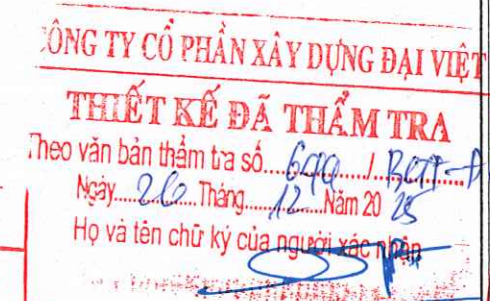 CÔNG TY CỔ PHẦN XÂY DỰNG ĐẠI VIỆT
THIẾT KẾ ĐÃ THẨM TRA
Theo văn bản thẩm tra số......./.......
Ngày....26....Tháng....12....Năm 20 25
Họ và tên chữ ký của người xác nhận